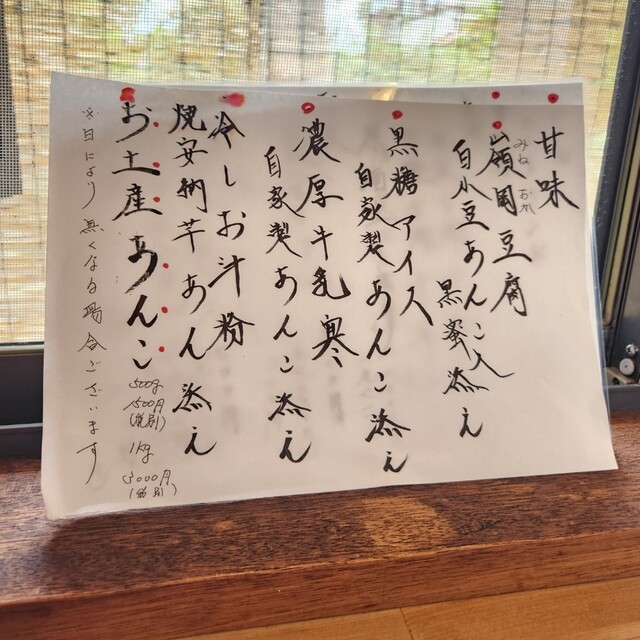 甘味
みね おか
嶺岡豆腐
白小豆あんこ入
黒蜜添え
黒糖アイス
自家製あんこ添え
濃厚牛乳寒
自家製あんこ添え
冷しお汁粉
焼安納芋あん添え
お土産あんこ
500g
1500円
(税別)
1kg
3000円
(税別)
※日により無くなる場合ございます